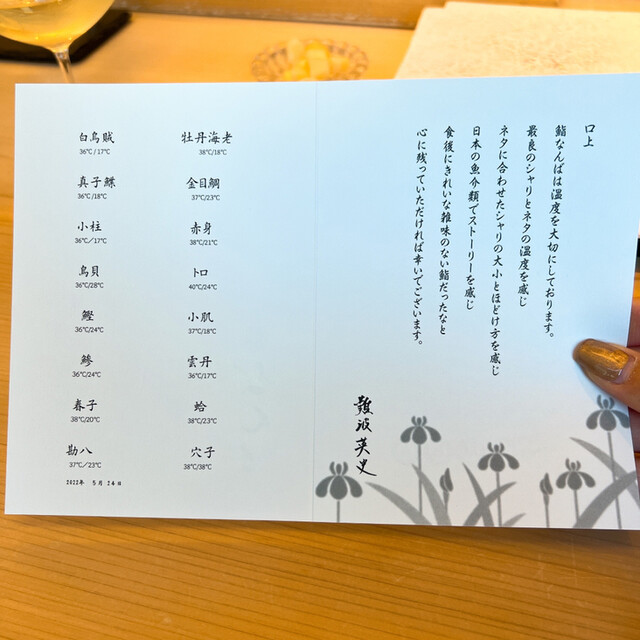 口上
鮨なんばは温度を大切にしております。
最良のシャリとネタの温度を感じ
ネタに合わせたシャリの大小とほどけ方を感じ
日本の魚介類でストーリーを感じ
食後にきれいな雑味のない鮨だったなと
心に残っていただければ幸いでございます。
難波英史
白烏賊
36℃/17℃
真子鰈
36℃/18℃
小柱
36℃/17℃
鳥貝
36℃/28℃
鰹
36℃/24℃
鯵
36℃/24℃
春子
38℃/20℃
勘八
37℃/23℃
2022年 5月 24日
牡丹海老
38℃/18℃
金目鯛
37℃/23℃
赤身
38℃/21℃
トロ
40℃/24℃
小肌
37℃/18℃
雲丹
36℃/17℃
蛤
38℃/23℃
穴子
38℃/38℃